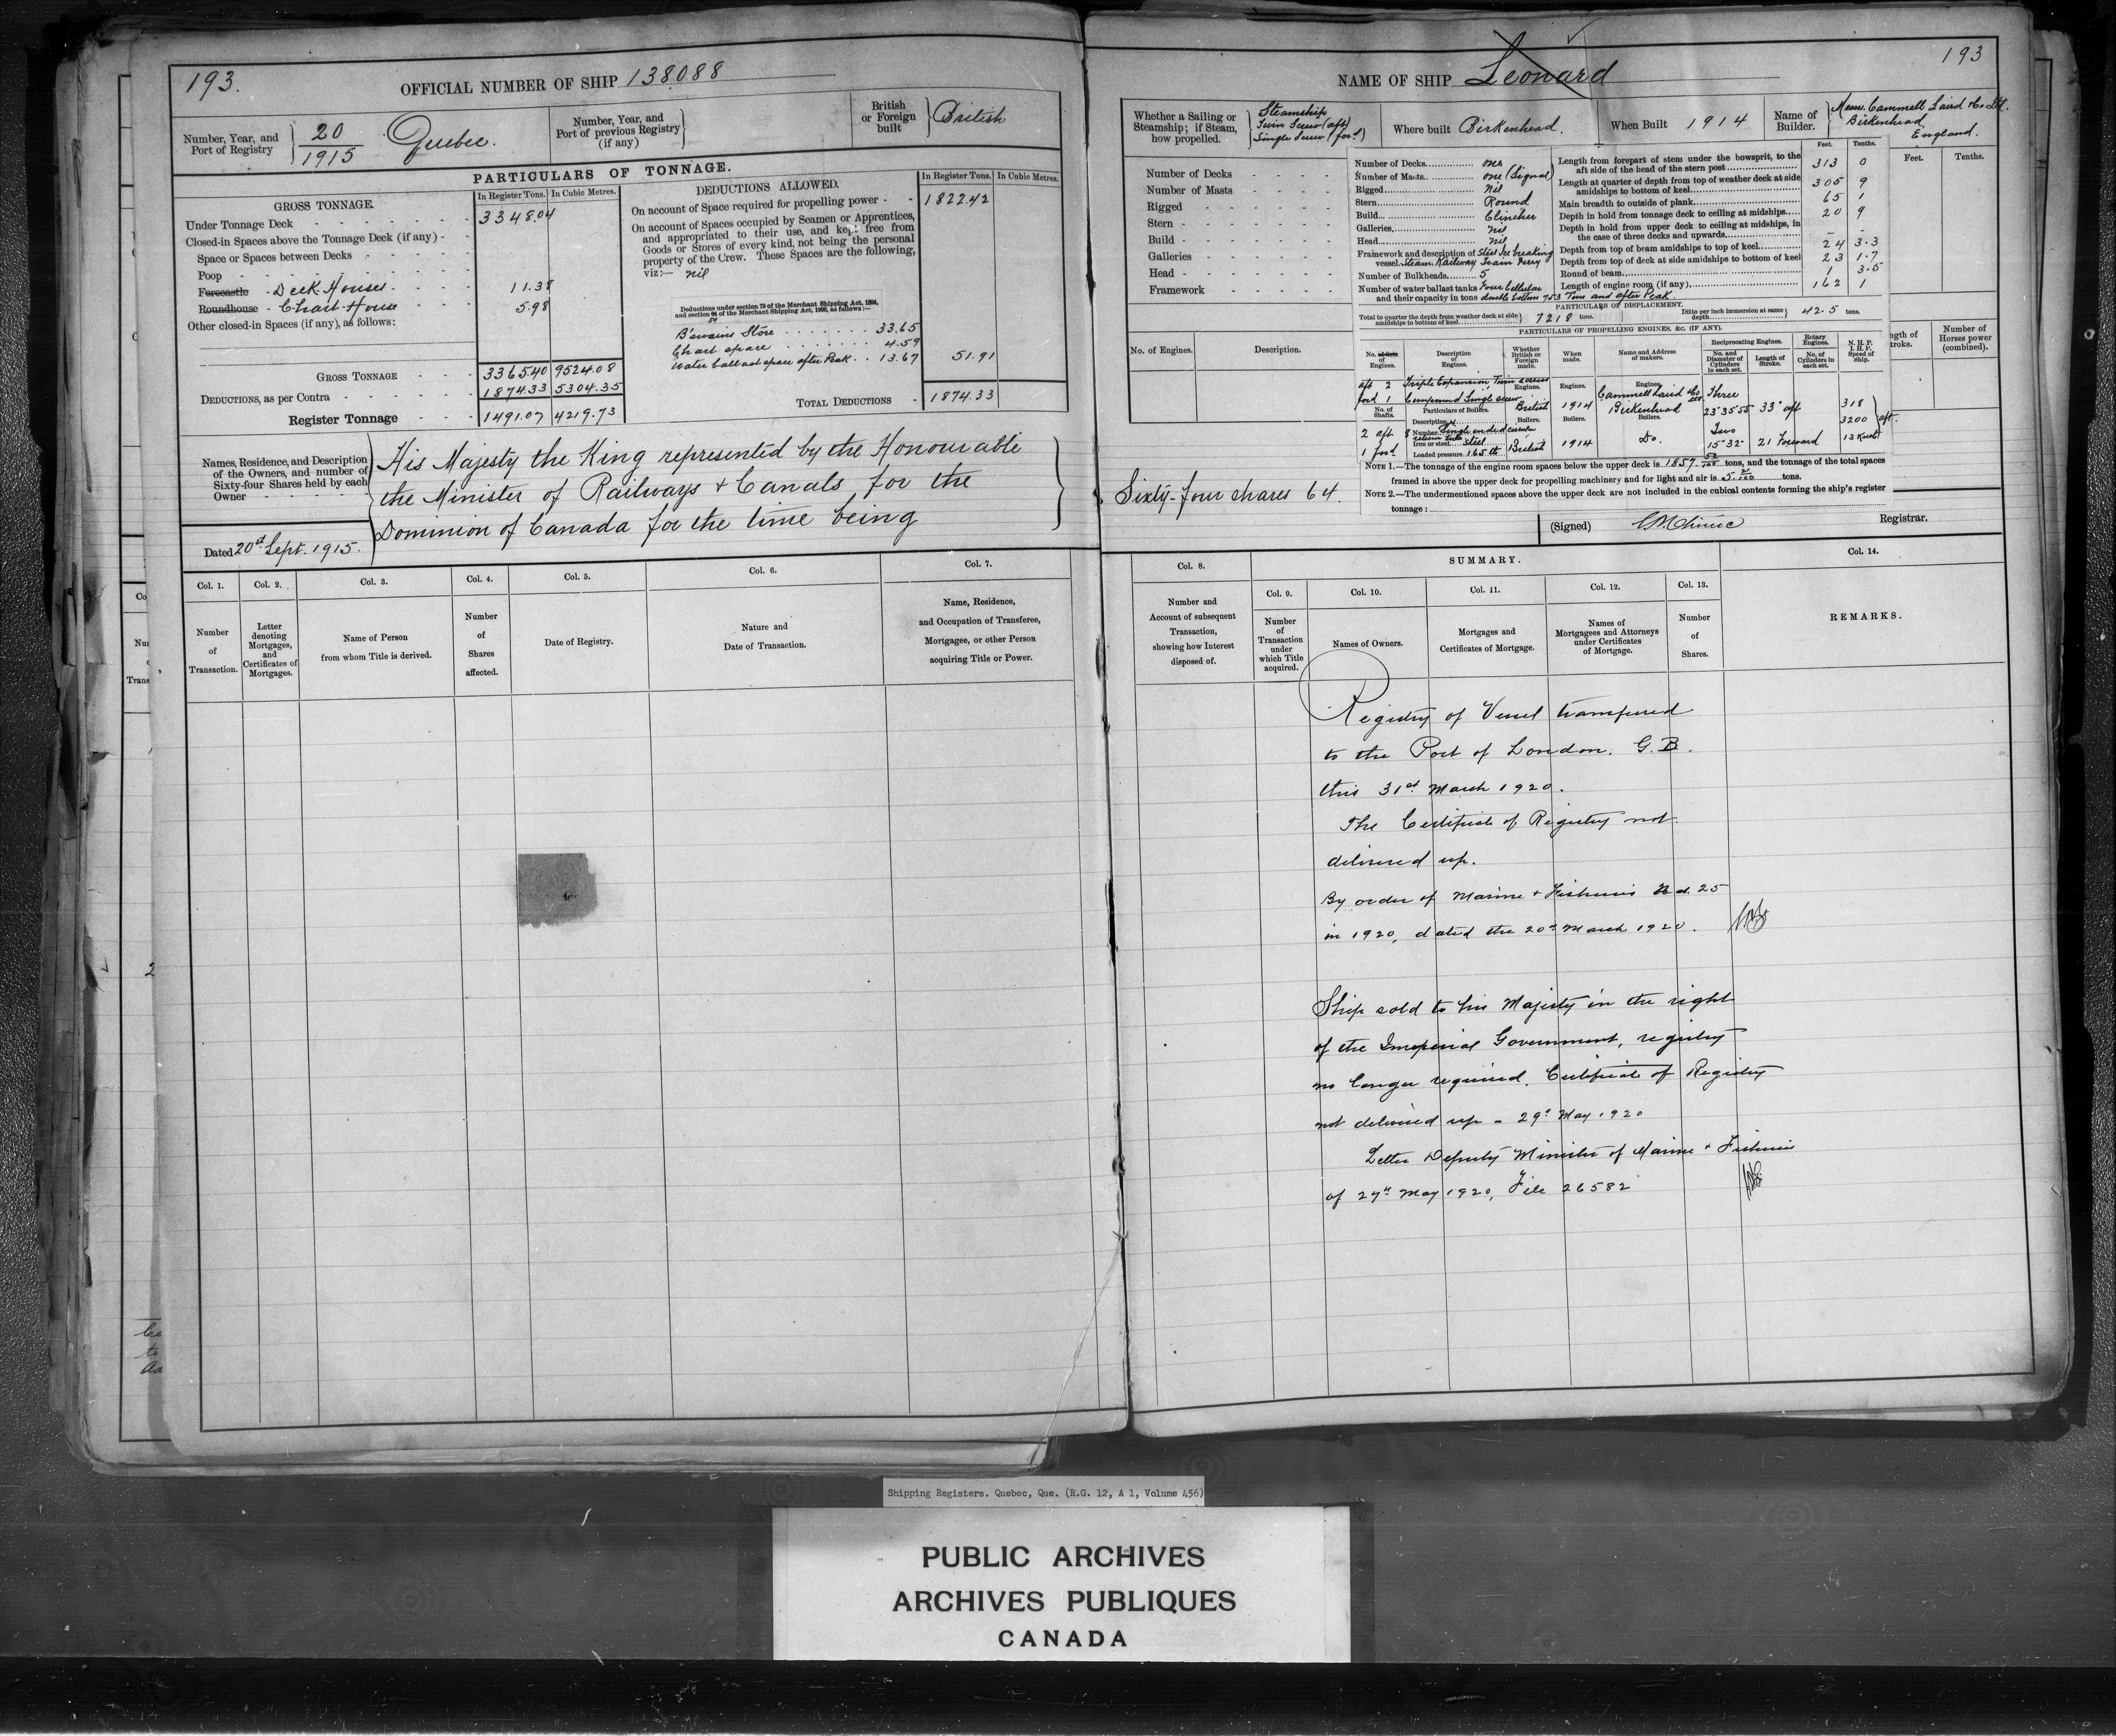 193.
OFFICIAL NUMBER OF SHIP 138088
Number, Year, and
Port of Registry
20
1915
Quebec.
Number, Year, and
Port of previous Registry
(if any)
British
or Foreign
built
British
PARTICULARS OF TONNAGE.
GROSS TONNAGE.
In Register Tons.
In Cubic Metres.
Under Tonnage Deck - - - - - - 3348.04
Closed-in Spaces above the Tonnage Deck (if any) - -
Space or Spaces between Decks - - - -
Poop - - - - - - -
Forecastle - Deck Houses - - - - 11.38
Roundhouse - Chart House - - - 5.98
Other closed-in Spaces (if any), as follows:
GROSS TONNAGE - - - 3365.40 9524.08
DEDUCTIONS, as per Contra - - - - - 1874.33 5304.35
Register Tonnage - - - 1491.07 4219.73
DEDUCTIONS ALLOWED.
In Register Tons.
In Cubic Metres.
On account of Space required for propelling power - - 1822.42
On account of Spaces occupied by Seamen or Apprentices,
and appropriated to their use, and kept free from
Goods or Stores of every kind, not being the personal
property of the Crew. These Spaces are the following,
viz:— nil
Deductions under section 79 of the Merchant Shipping Act, 1894,
and section 54 of the Merchant Shipping Act, 1906, as follows:—
B'swains Store . . . . . . . 33.65
Chart space . . . . . . . . 4.59
Water ballast space after Peak . . 13.67 51.91
TOTAL DEDUCTIONS - 1874.33
Names, Residence, and Description
of the Owners, and number of
Sixty-four Shares held by each
Owner - - - - -
His Majesty the King represented by the Honourable
the Minister of Railways & Canals for the
Dominion of Canada for the time being
Dated 20th Sept. 1915.
Col. 1.
Col. 2.
Col. 3.
Col. 4.
Col. 5.
Col. 6.
Col. 7.
Number
of
Transaction.
Letter
denoting
Mortgages,
and
Certificates of
Mortgages.
Name of Person
from whom Title is derived.
Number
of
Shares
affected.
Date of Registry.
Nature and
Date of Transaction.
Name, Residence,
and Occupation of Transferee,
Mortgagee, or other Person
acquiring Title or Power.
193
NAME OF SHIP Leonard
Whether a Sailing or
Steamship; if Steam,
how propelled.
Steamship
Twin Screw (aft)
Single Screw (for'd)
Where built Birkenhead.
When Built 1914
Name of
Builder.
Messrs. Cammell Laird & Co. Ltd.
Birkenhead
England.
Feet.
Tenths.
Number of Decks - - - -
Number of Masts - - - -
Rigged - - - - - -
Stern - - - - - - -
Build - - - - - - -
Galleries - - - - -
Head - - - - - - -
Framework - - - - -
No. of Engines.
Description.
Number of Decks............ one
Number of Masts............ one (Signal)
Rigged............ Nil
Stern............ Round
Build............ Clincher
Galleries............ Nil
Head............ nil
Framework and description of Steel Ice breaking
vessel. Steam Railway Train Ferry
Number of Bulkheads........ 5
Number of water ballast tanks Four cellular
and their capacity in tons double bottom 753 Tons and after Peak.
Feet.
Tenths.
Length from forepart of stem under the bowsprit, to the
aft side of the head of the stern post............ 313 0
Length at quarter of depth from top of weather deck at side
amidships to bottom of keel............ 305 9
Main breadth to outside of plank............ 65 1
Depth in hold from tonnage deck to ceiling at midships.... 20 9
Depth in hold from upper deck to ceiling at midships, in
the case of three decks and upwards............ - -
Depth from top of beam amidships to top of keel............ 24 3.3
Depth from top of deck at side amidships to bottom of keel 23 1.7
Round of beam............ 1 3.5
Length of engine room (if any)............ 162 1
PARTICULARS OF DISPLACEMENT.
Total to quarter the depth from weather deck at side
amidships to bottom of keel............ 7218 tons.
Ditto per inch immersion at same
depth............ 42.5 tons.
PARTICULARS OF PROPELLING ENGINES, &c. (IF ANY).
No. of
Engines.
Description
of
Engines.
Whether
British or
Foreign
made.
When
made.
Name and Address
of makers.
Reciprocating Engines.
No. and
Diameter of
Cylinders
in each set.
Length of
Stroke.
Rotary
Engines.
No. of
Cylinders in
each set.
N. H. P.
I. H. P.
Speed of
ship.
aft 2 Triple Expansion Twin screws
ford 1 Compound Single screw
Engines.
Engines.
Engines.
British
1914
Cammell Laird & Co
Birkenhead
Three
23" 35" 55 33" aft
318
3200 aft
13 Knots
No. of
Shafts.
Particulars of Boilers.
Boilers.
Boilers.
Boilers.
2 aft
1 ford
Description
Number 8
Iron or steel.... Steel
Loaded pressure. 165 lb
British
1914
Do.
Two
15" 32" 21 Forward
NOTE 1.—The tonnage of the engine room spaces below the upper deck is 1857 tons, and the tonnage of the total spaces
framed in above the upper deck for propelling machinery and for light and air is tons.
NOTE 2.—The undermentioned spaces above the upper deck are not included in the cubical contents forming the ship's register
tonnage:
ngth of
troke.
Number of
Horses power
(combined).
Sixty-four shares 64.
(Signed)
Registrar.
Col. 8.
SUMMARY.
Col. 14.
Col. 9.
Col. 10.
Col. 11.
Col. 12.
Col. 13.
Number and
Account of subsequent
Transaction,
showing how Interest
disposed of.
Number
of
Transaction
under
which Title
acquired.
Names of Owners.
Mortgages and
Certificates of Mortgage.
Names of
Mortgagees and Attorneys
under Certificates
of Mortgage.
Number
of
Shares.
REMARKS.
Registry of Vessel transferred
to the Port of London. G.B.
this 31st March 1920.
The Certificate of Registry not
delivered up.
By order of Marine & Fisheries No. 25
in 1920, dated the 20th March 1920.
Ship sold to his Majesty in the right
of the Imperial Government, registry
no longer required. Certificate of Registry
not delivered up - 29th May 1920
Letter Deputy Minister of Marine & Fisheries
of 27th May 1920, File 26582
Shipping Registers. Quebec, Que. (R.G. 12, A 1, Volume 456)
PUBLIC ARCHIVES
ARCHIVES PUBLIQUES
CANADA